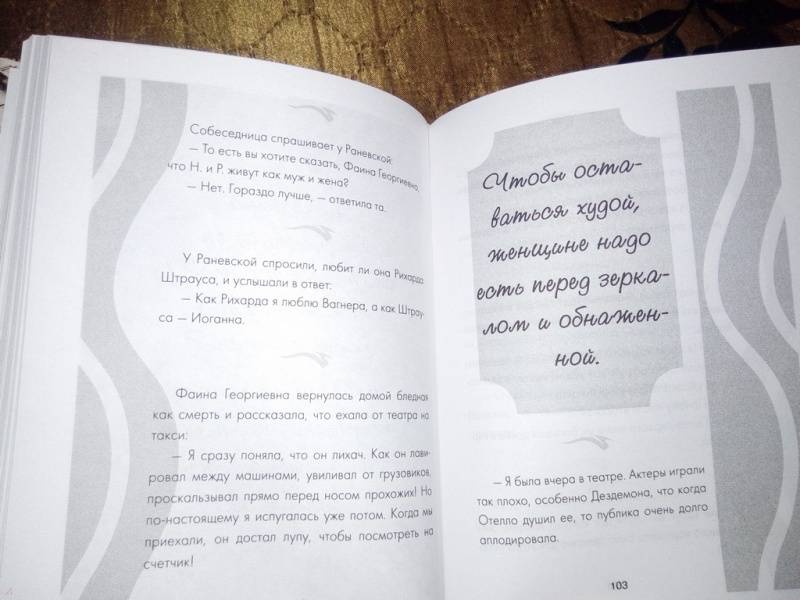 Собеседница спрашивает у Раневской:
— То есть вы хотите сказать, Фаина Георгиевна,
что Н. и Р. живут как муж и жена?
— Нет. Гораздо лучше, — ответила та.
У Раневской спросили, любит ли она Рихарда
Штрауса, и услышали в ответ:
— Как Рихарда я люблю Вагнера, а как Штрау-
са — Иоганна.
Фаина Георгиевна вернулась домой бледная
как смерть и рассказала, что ехала от театра на
такси:
— Я сразу поняла, что он лихач. Как он лави-
ровал между машинами, увиливал от грузовиков,
проскальзывал прямо перед носом прохожих! Но
по-настоящему я испугалась уже потом. Когда мы
приехали, он достал лупу, чтобы посмотреть на
счетчик!
Чтобы оста-
ваться худой,
женщине надо
есть перед зерка-
лом и обнажен-
ной.
— Я была вчера в театре. Актеры играли
так плохо, особенно Дездемона, что когда
Отелло душил ее, то публика очень долго
аплодировала.
103